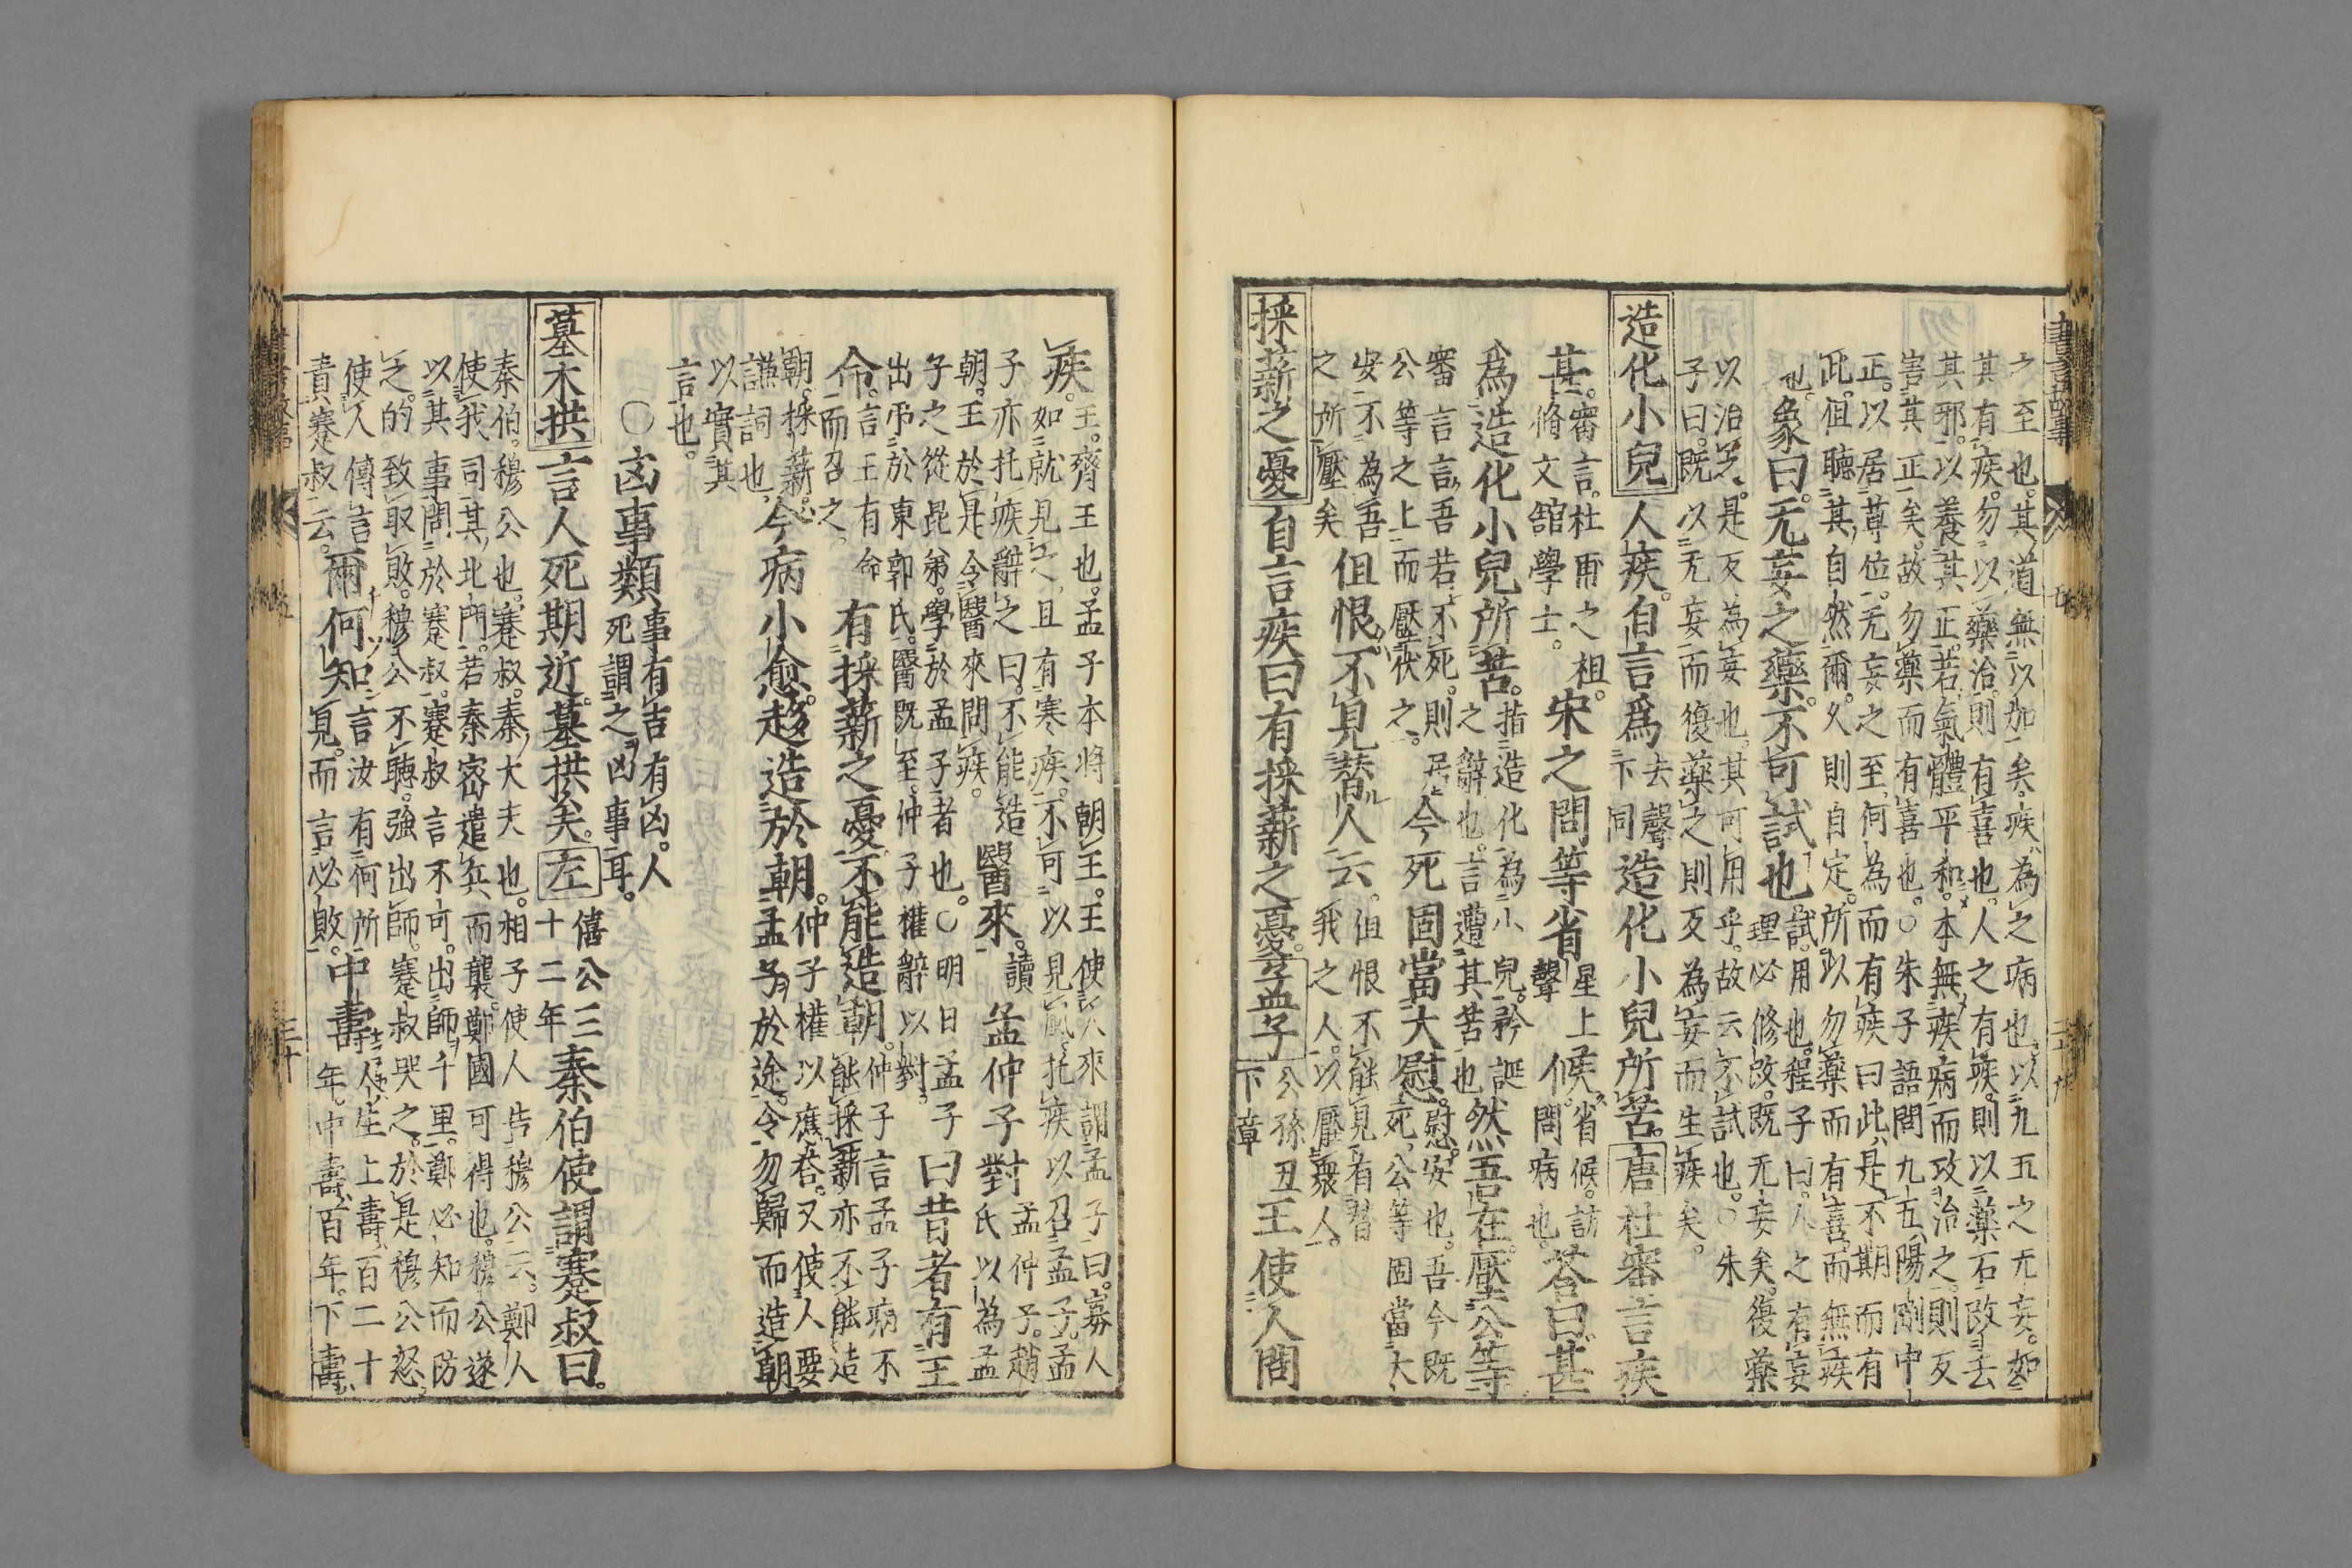 之至也。其道無以加矣。疾為之病也。以九五之无妄。如
其有疾。勿以藥治。則有喜也。人之有疾。則以藥石攻去
其邪。以養其正。若氣體平和。本無疾病。而攻治之。則反
害其正矣。故勿藥而有喜也。○朱子語間九五。陽剛中
正。以居尊位。无妄之至。何為而有疾。曰此是不期而有
此。但聽其自然爾。久則自定。所以勿藥而有喜。而無疾
也。象曰。无妄之藥。不可試也。試。用也。程子曰。人之有妄
理必修改。既无妄矣。復藥
以治之。是反為妄也。其可用乎。故云不試也。○朱
子曰。既以无妄而復藥之則反為妄而生疾矣。
造化小兒人疾。自言爲去聲下同造化小兒所苦。唐杜審言疾
甚。審言。杜甫之祖。脩文舘學士。宋之問等省星上聲候。省候。訪問病也。荅曰。甚
爲造化小兒所苦。指造化為小兒。矜誕之辭也。言遭其苦也然吾在壓公等
審言言。吾若不死。則居公等之上而壓伏之。今死固當大慰。慰。安也。吾今既死。公等固當大
安。不為吾之所壓矣但恨。不見替人云。但恨不能見有替我之人。以壓衆人。
採薪之憂自言疾曰有採薪之憂。孟子公孫丑下章王使人問
疾。王。齊王也。孟子本將朝王。王使人來謂孟子曰。寡人
如就見之。且有寒疾。不可以見風。托疾以召孟子。孟
子亦托疾辭之曰。不能造朝。王於是令醫來問疾。醫來。讀孟仲子對孟仲子。趙氏以為孟
子之從昆弟。學於孟子者也。○明日孟子出弔於東郭氏。醫既至。仲子權辭以對。曰昔者有王
命。言王有命而召之。有採薪之憂。不能造朝。仲子言孟子病不能採薪。亦不能造
朝。採薪。謙詞也。今病小愈。趍造於朝。仲子權以應荅。又使人要孟子於途。令勿歸而造朝。
以實其言也。
○凶事類事有吉有凶。人死謂之凶事耳。
墓木拱言人死期近。墓拱矣。左僖公三十二年秦伯使謂蹇叔曰。
秦伯。穆公也。蹇叔。秦大夫也。相子使人告穆公云。鄭人
使我司其北門。若秦密遣兵而襲。鄭國可得也。穆公遂
以其事問於蹇叔。蹇叔言不可。出師千里。鄭必知而防
之。的致取敗。穆公不聽。強出師。蹇叔哭之。於是穆公怒。
使人傳言責蹇叔云。爾何知言汝有何所見。而言必敗。中壽人生上壽。百二十年。中壽。百年。下壽。